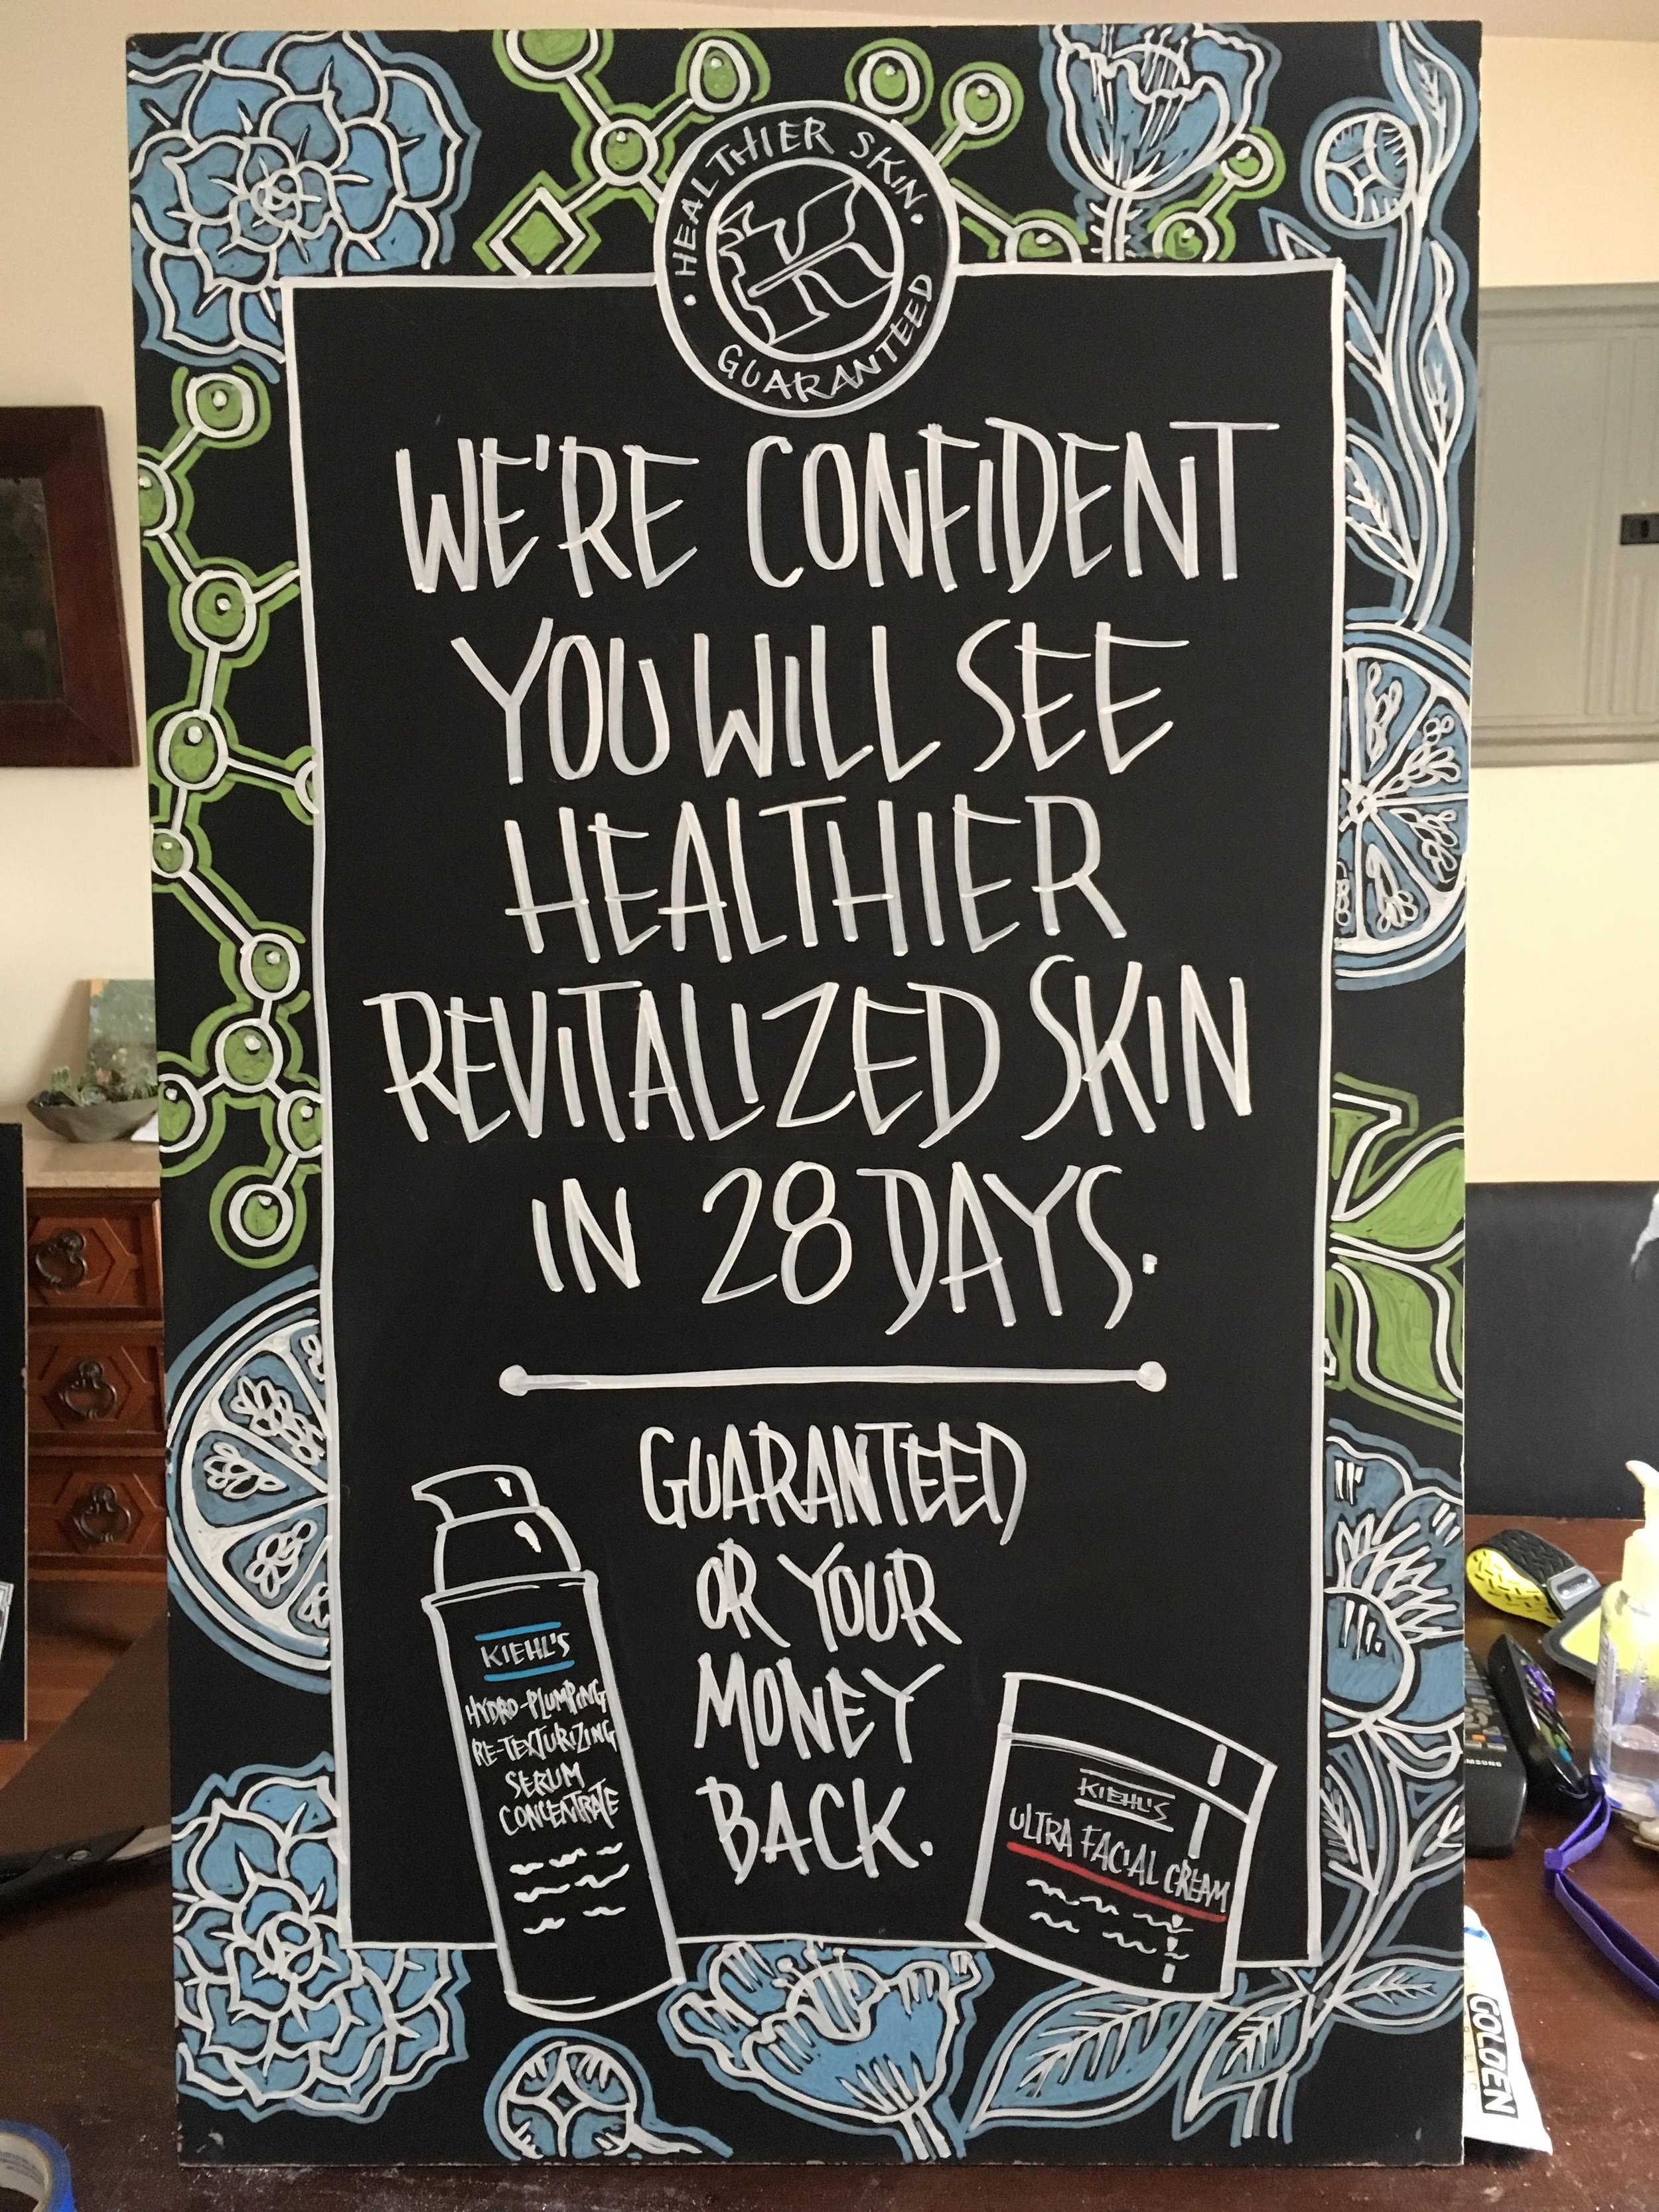 HEALTHIER SKIN.
GUARANTEED
K
WE'RE CONFIDENT
YOU WILL SEE
HEALTHIER
REVITALIZED SKIN
IN 28 DAYS.
GUARANTEED
OR YOUR
MONEY
BACK.
KIEHL'S
HYDRO-PLUMPING
RE-TEXTURIZING
SERUM
CONCENTRATE
KIEHL'S
ULTRA FACIAL CREAM
SAMSUNG
GOLDEN